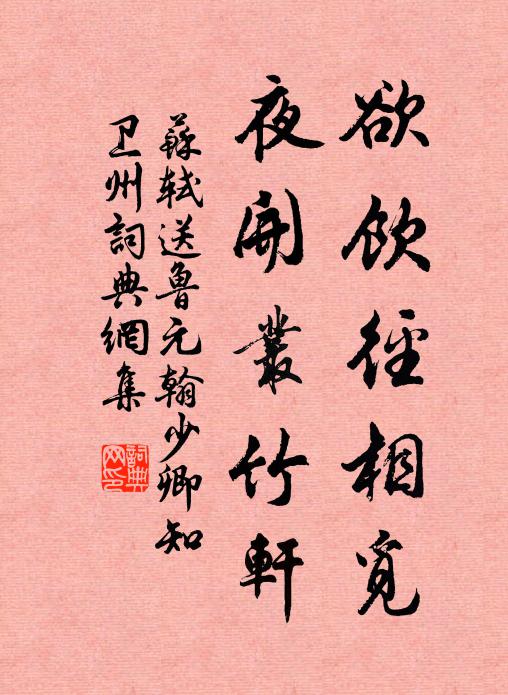 欲飲徑相覓
夜開叢竹軒
蘇軾送魯元翰少卿知
卫州詞典網集
詞典
网印